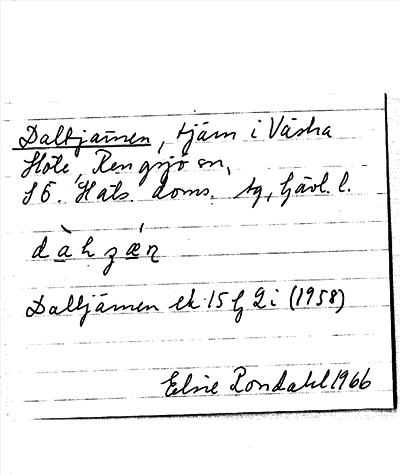 Daltjärnen, tjärn i Västra
Höle, Rengsjö sn,
SÖ. Häls. doms. tg, Gävl. l.
dàhzǽn
Daltjärnen ek. 15 G 2 i (1958)
Elsie Rondahl 1966